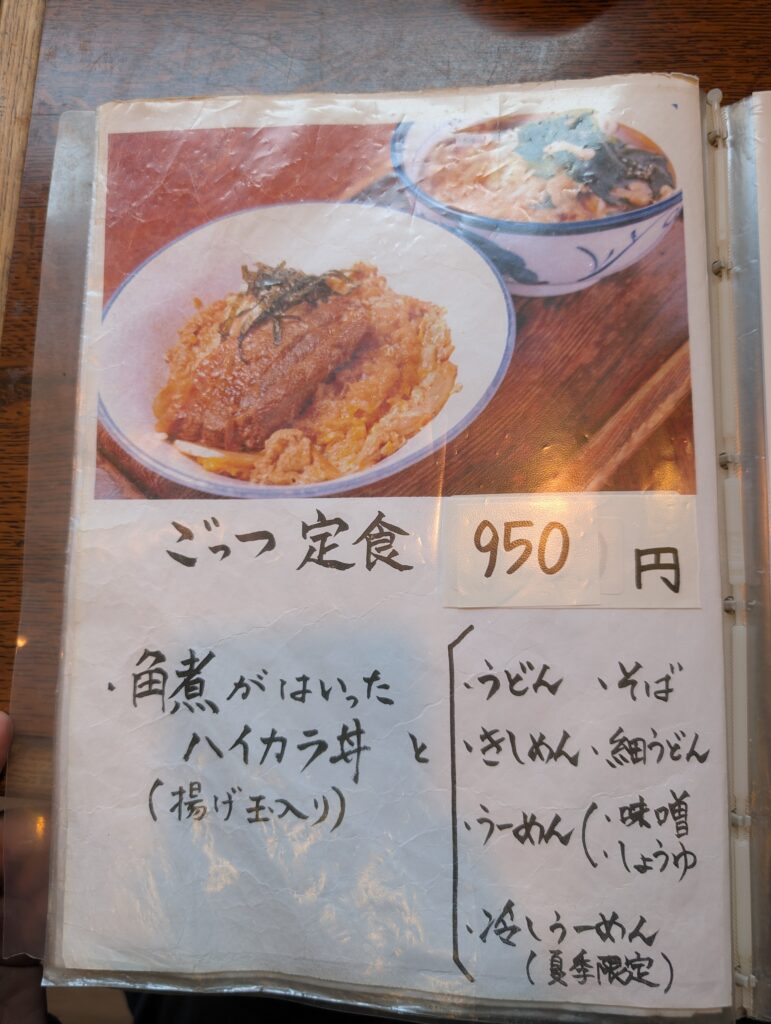 ごっつ定食 950円
・角煮がはいった
ハイカラ丼 と
(揚げ玉入り)
・うどん ・そば
・きしめん ・細うどん
・うーめん (・味噌
・しょうゆ
・冷しうーめん
(夏季限定)